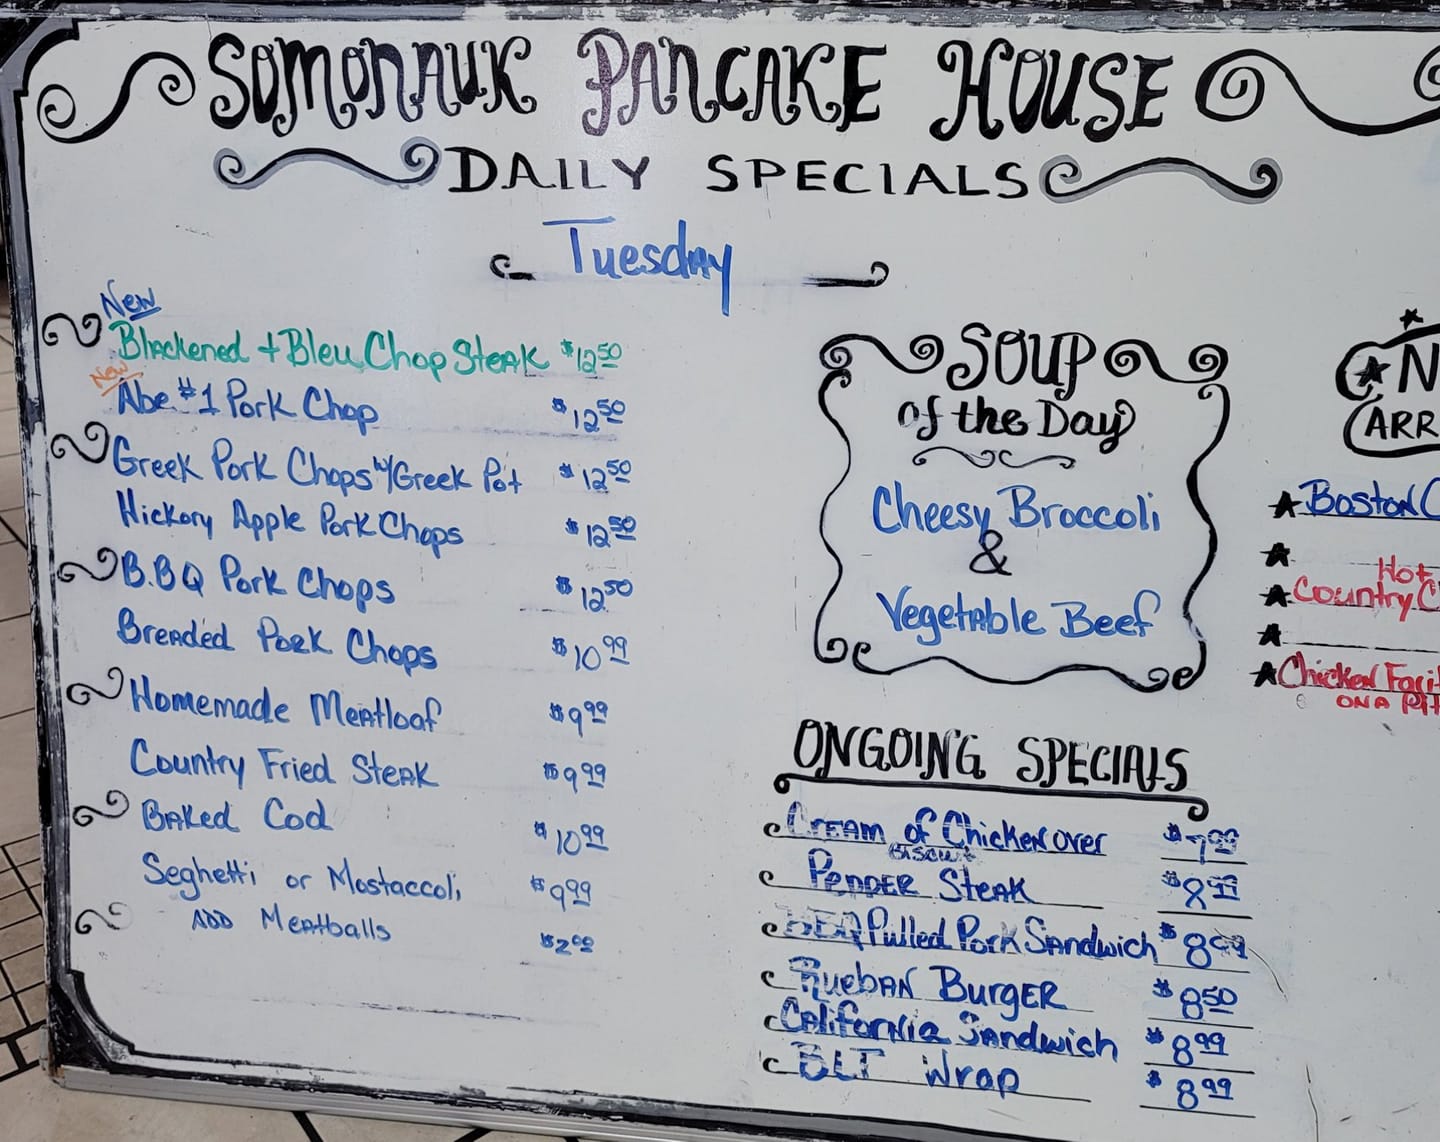 SOMONAUK PANCAKE HOUSE
DAILY SPECIALS
Tuesday
New
Blackened + Bleu Chop Steak $12.50
New
Abe #1 Pork Chop $12.50
Greek Pork Chops w/Greek Pot $12.50
Hickory Apple Pork Chops $12.50
B.B Q Pork Chops $12.50
Breaded Pork Chops $10.99
Homemade Meatloaf $9.99
Country Fried Steak $9.99
Baked Cod $10.99
Seghetti or Mostaccoli $9.99
ADD Meatballs $2.00
SOUP
of the Day
Cheesy Broccoli
&
Vegetable Beef
ONGOING SPECIALS
Cream of Chicken over $7.99
Biscuit
Pepper Steak $8.99
BBQ Pulled Pork Sandwich $8.99
Rueban Burger $8.50
California Sandwich $8.99
BLT Wrap $8.99
N
ARR
Boston C
Hot
Country C
Chicken Faji
ON A Pit